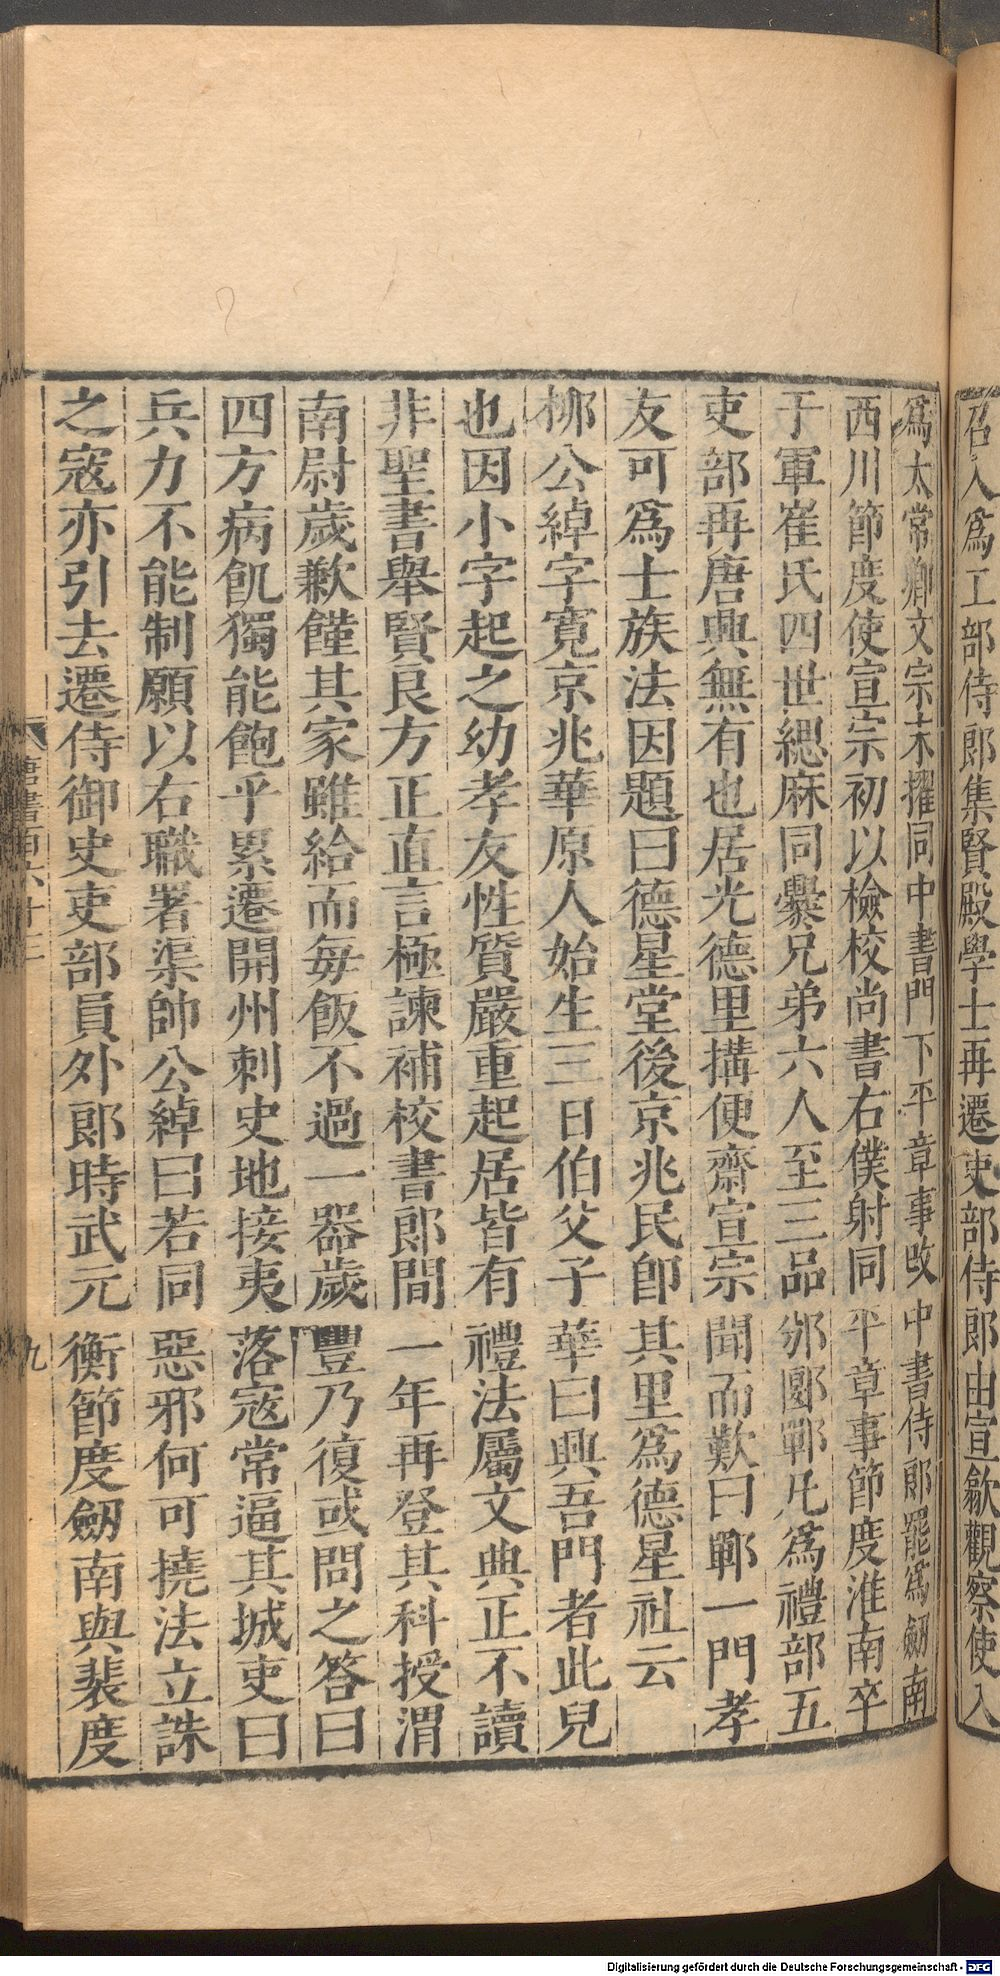 召入爲工部侍郎集賢殿學士再遷吏部侍郎由宣歙觀察使入
爲太常卿文宗末擢同中書門下平章事改中書侍郎罷爲劒南
西川節度使宣宗初以檢校尚書右僕射同平章事節度淮南卒
于軍崔氏四世緦麻同爨兄弟六人至三品邠郾鄲凡爲禮部五
吏部再唐興無有也居光德里搆便齋宣宗聞而歎曰鄲一門孝
友可爲士族法因題曰德星堂後京兆民卽其里爲德星社云
柳公綽字寬京兆華原人始生三日伯父子華曰興吾門者此兒
也因小字起之幼孝友性質嚴重起居皆有禮法屬文典正不讀
非聖書舉賢良方正直言極諫補校書郎間一年再登其科授渭
南尉歲歉饉其家雖給而每飯不過一器歲豐乃復或問之答曰
四方病飢獨能飽乎累遷開州刺史地接夷落寇常逼其城吏曰
兵力不能制願以右職署渠帥公綽曰若同惡邪何可撓法立誅
之寇亦引去遷侍御史吏部員外郎時武元衡節度劒南與裴度
唐書百六十三
九
Digitalisierung gefördert durch die Deutsche Forschungsgemeinschaft - DFG